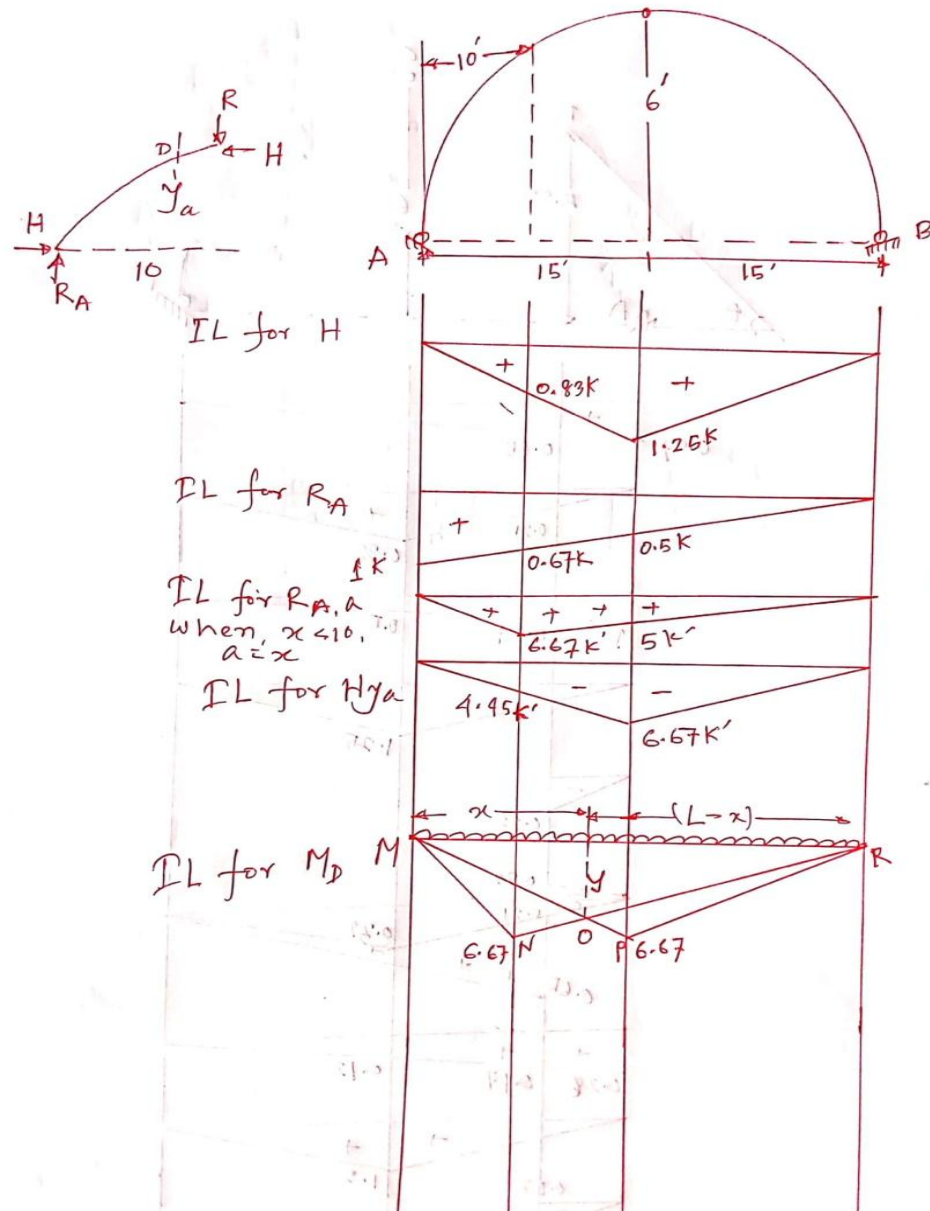 10'
6'
R
D
H
ya
H
10
RA
A
B
15'
15'
IL for H
+
+
0.83K
1.25K
IL for RA
+
1K
0.67K
0.5K
IL for RA,a
when, x<10,
a=x
+ + + +
6.67K'
5K'
IL for Hya
- -
4.45K'
6.67K'
x
(L-x)
IL for MD
M
R
y
6.67 N
O
P 6.67